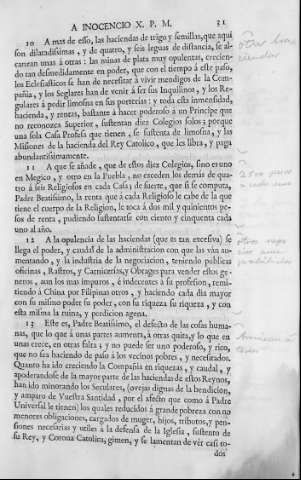 A INOCENCIO X. P. M. 31
10 A mas de esso, las haciendas de trigo y semillas, que aqui
son dilatadissimas, y de quatro, y seis leguas de distancia, se al-
cançan unas á otras: las minas de plata muy opulentas, crecien-
do tan desmedidamente en poder, que con el tiempo á este paso,
los Eclesiasticos se han de necesitar á vivir mendigos de la Com-
pañia, y los Seglares han de venir á ser sus Inquilinos, y los Re-
gulares á pedir limosna en sus porterias: y toda esta inmensidad,
hacienda, y rentas, bastante á hacer poderoso á un Principe que
no reconozca Superior, sustentan diez Colegios solos; porque
una sola Casa Profesa que tienen, se sustenta de limosna, y las
Misiones de la hacienda del Rey Catolico, que les libra, y paga
abundantissimamente.
11 A que se añade, que de estos diez Colegios, sino es uno
en Megico, y otro en la Puebla, no exceden los demás de qua-
tro á seis Religiosos en cada Casa; de suerte, que si se computa,
Padre Beatisimo, la renta que á cada Religioso le cabe de la que
tiene el cuerpo de la Religion, le toca á dos mil y quinientos pe-
sos de renta, pudiendo sustentarse con ciento y cinquenta cada
uno al año.
12 A la opulencia de las haciendas (que es tan excesiva) se
llega el poder, y caudal de la administracion con que las ván au-
mentando, y la industria de la negociacion, teniendo publicas
oficinas, Rastros, y Carnicerias, y Obrages para vender estos ge-
neros, aun los mas impuros, é indecentes á su profesion, remi-
tiendo á China por Filipinas otros, y haciendo cada dia mayor
con su mismo poder su poder, con su riqueza su riqueza, y con
esta misma la ruina, y perdicion agena.
13 Este es, Padre Beatisimo, el defecto de las cosas huma-
nas, que lo que á unas partes aumenta, á otras quita, y lo que en
unas crece, en otras falta; y no puede ser uno poderoso, y rico,
que no sea haciendo de paso á los vecinos pobres, y necesitados.
Quanto ha ido creciendo la Compañia en riquezas, y caudal, y
apoderandose de la mayor parte de las haciendas de estos Reynos,
han ido minorando los Seculares, (ovejas dignas de la bendicion,
y amparo de Vuestra Santidad, por el afecto que como á Padre
Universal le tienen) los quales reducidos á grande pobreza con no
menores obligaciones, cargados de muger, hijos, tributos, y pen-
siones necesarias y utiles á la defensa de la Iglesia, sustento de
su Rey, y Corona Catolica, gimen, y se lamentan de vér casi to-
dos